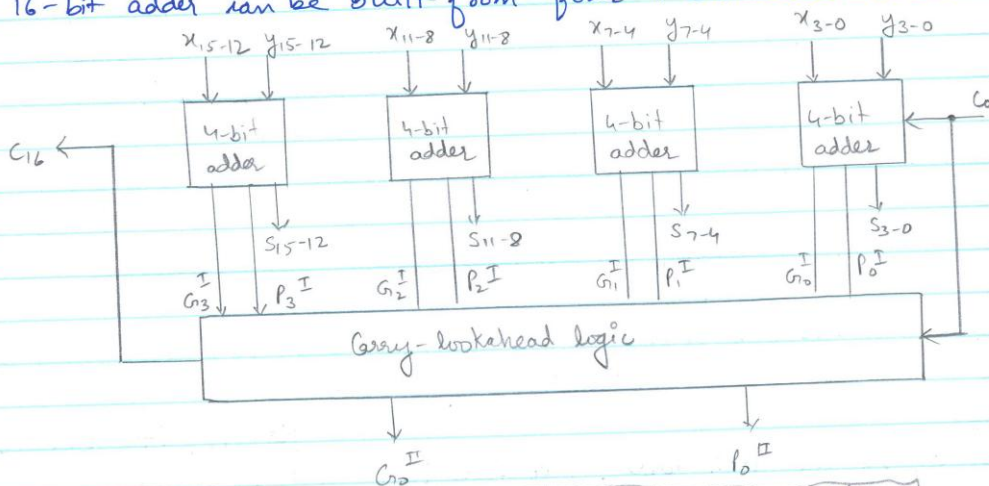 16-bit adder can be built from
x15-12 y15-12 x11-8 y11-8 x7-4 y7-4 x3-0 y3-0
4-bit adder 4-bit adder 4-bit adder 4-bit adder C0
C16
S15-12 S11-8 S7-4 S3-0
G3^I P3^I G2^I P2^I G1^I P1^I G0^I P0^I
Carry-lookahead logic
G0^II P0^II